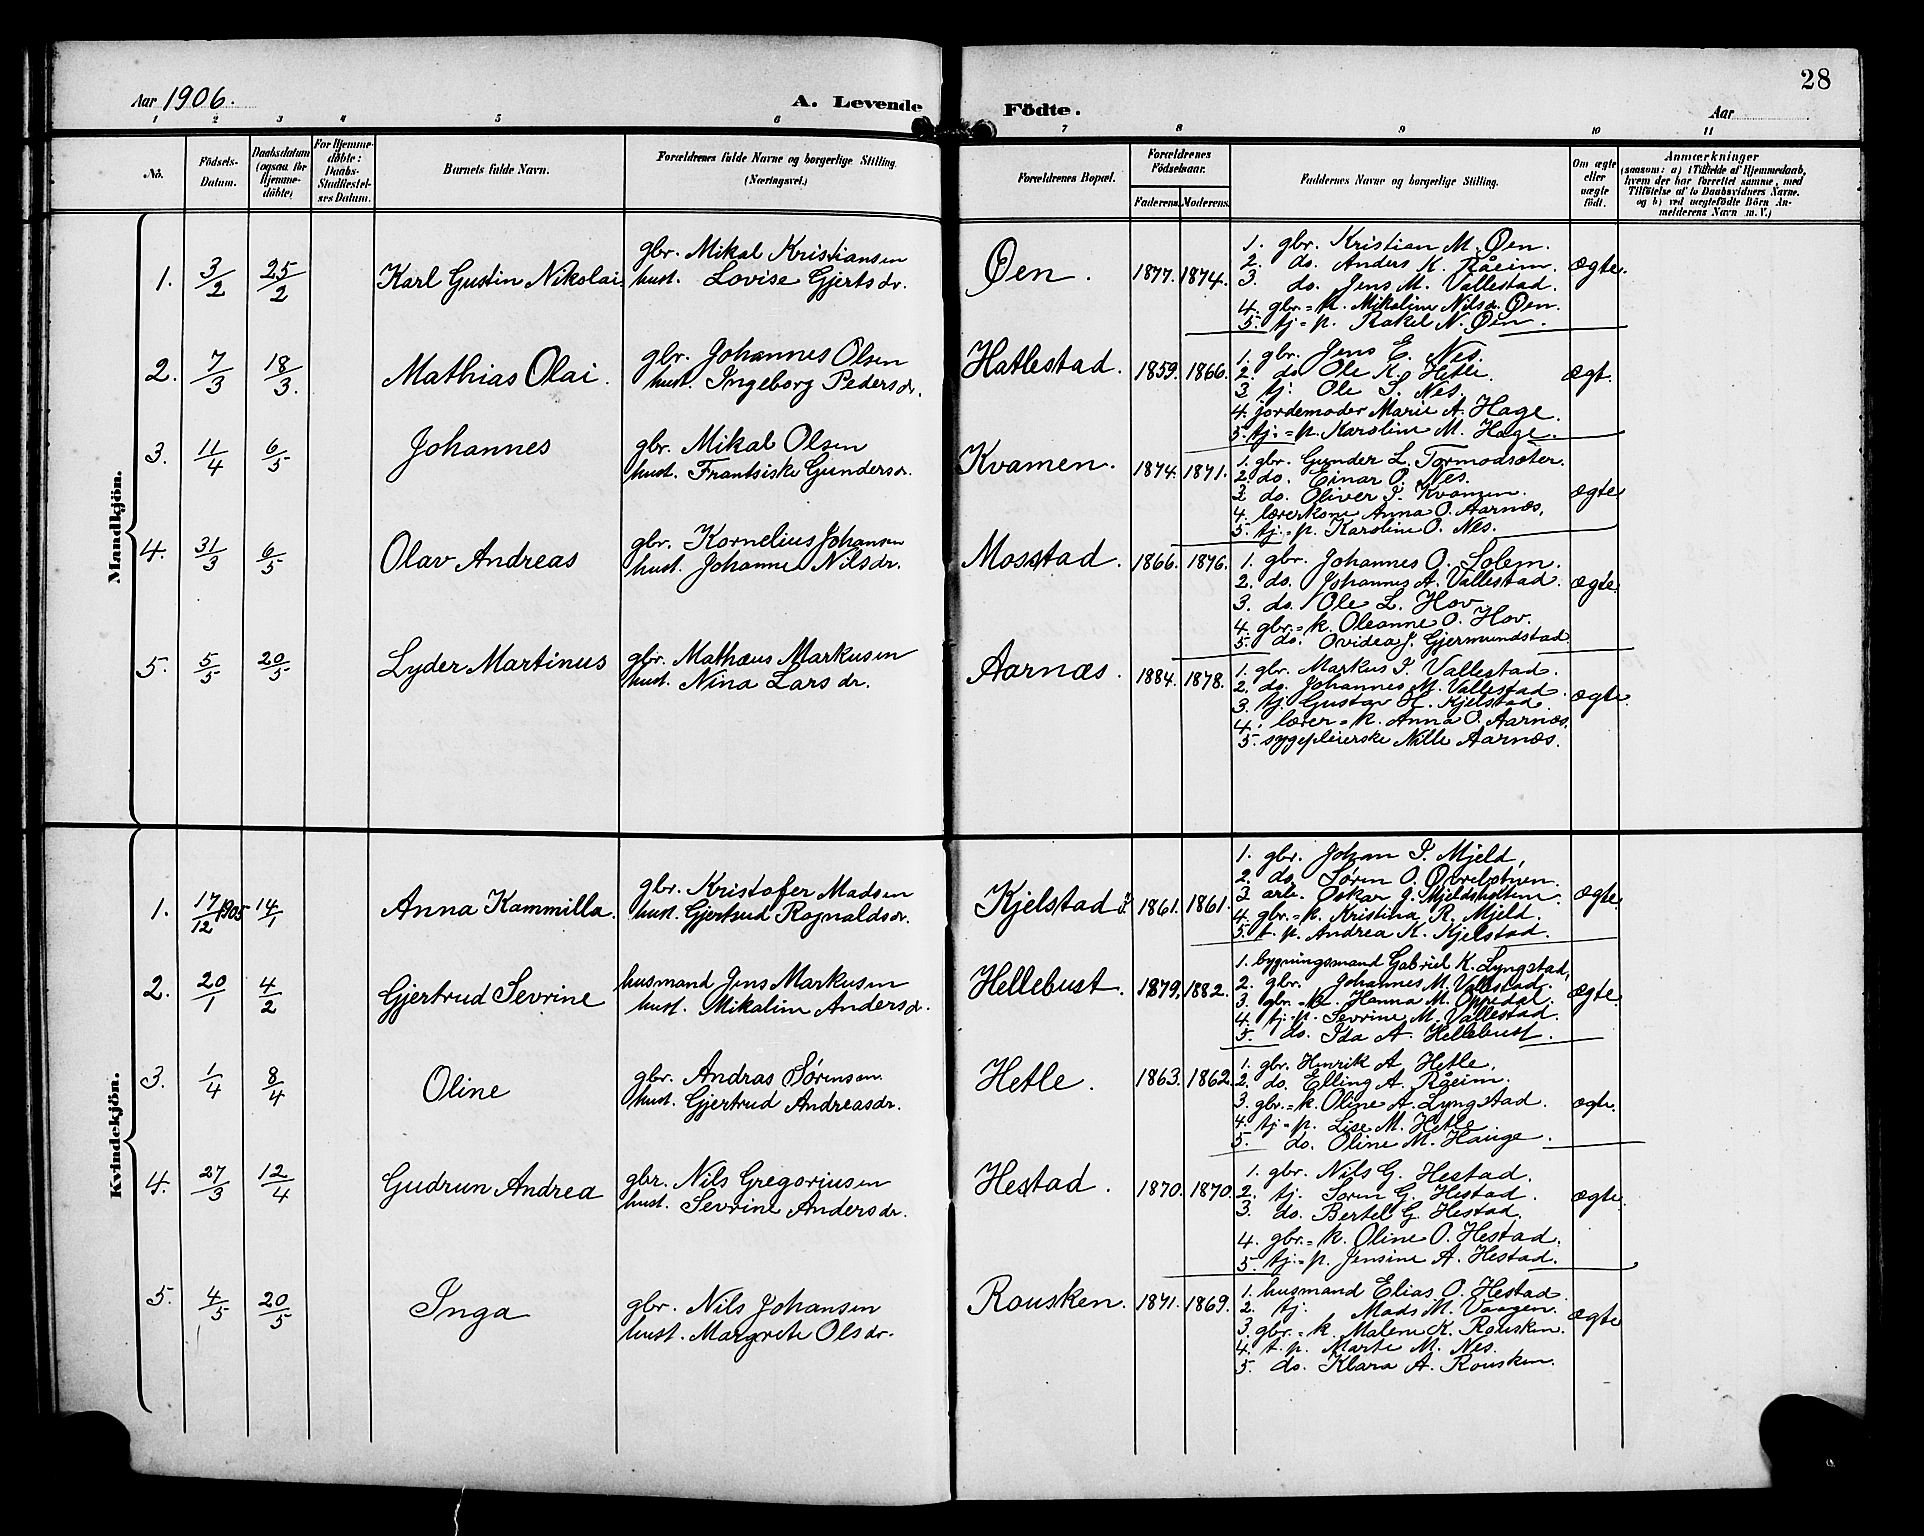 28
Aar 1906.
A. Levende Födte.
Aar
1 2 3 4 5 6 7 8 9 10 11
No.
Födsels-Datum.
Daabsdatum (ogsaa for Hjemme-døbte)
For Hjemme-døbte: Daabs-Stadfæstel-ses Datum.
Barnets fulde Navn.
Forældrenes fulde Navne og borgerlige Stilling. (Næringsvei.)
Forældrenes Bopæl.
Forældrenes Födselsaar.
Faderens. Moderens.
Faddernes Navne og borgerlige Stilling.
Om ægte eller uægte født.
Anmærkninger
(saasom: a) i Tilfælde af Hjemmedaab, hvem der har forrettet samme, med Tilføielse af to Daabsvidners Navne, og b) ved uægtefødte Börn An-melderens Navn m. V.)
Mandkjön.
1. 3/2 25/2 Karl Gustin Nikolai gbr. Mikal Kristiansen
hust. Lovise Gjertsdr.
Øen. 1877. 1874.
1. gbr. Kristian M. Øen.
2. do. Anders K. Råeim.
3. do. Jens M. Vallestad.
4. gbr.=k. Mikaline Nilsdr. Øen.
5. tj=p. Rakel N. Øen.
ægte.
2. 7/3 18/3. Mathias Olai. gbr. Johannes Olsen
hust. Ingeborg Pedersdr.
Hatlestad. 1859. 1866.
1. gbr. Jens E. Nes.
2. do Ole K. Hetle.
3 tj. Ole S. Nes.
4. jordemoder Marie A. Hage.
5. tj.=p. Karoline M. Hage.
ægt.
3. 11/4 6/5 Johannes gbr. Mikal Olsen
hust. Frantsiske Gundersdr.
Kvamen. 1874. 1871.
1. gbr. Gunder L. Tormodsæter.
2. do. Einar O. Nes.
3. do. Oliver I. Kvamen.
4. lærerkone Anna O. Aarnæs.
5. tj.=p. Karoline O. Nes.
ægte
4. 31/3 6/5 Olav Andreas gbr. Kornelius Johansen
hust. Johanne Nilsdr.
Mosstad. 1866. 1876.
1. gbr. Johannes O. Solem.
2. do. Johannes A. Vallestad.
3. do. Ole L. Hov
4. gbr.=k. Oleanne O. Hov.
5. do. Ovidea J. Gjermundstad
ægte.
5. 5/5 20/5 Lyder Martinus gbr. Mathæus Markusen
hust. Nina Larsdr.
Aarnæs. 1884. 1878.
1. gbr. Markus I. Vallestad.
2. do. Johannes M. Vallestad.
3. tj. Gustav H. Kjelstad.
4. lærer=k. Anna O. Aarnæs.
5. sygepleierske Nille Aarnæs.
ægte.
Kvindekjön.
1. 17/12 1905 14/1 Anna Kammilla. gbr. Kristofer Madsen
hust. Gjertrud Ragnaldsdr.
Kjelstad 1861. 1861.
1. gbr. Johan I. Mjeld,
2. do. Søren O. Øvrebotnen.
3 arb. Oskar J. Mjeldsholten.
4. gbr.=k. Kristina R. Mjeld.
5. t. p. Andrea K. Kjelstad.
ægte.
2. 20/1 4/2 Gjertrud Sevrine husmand Jens Markusen
hust. Mikaline Andersdr.
Hellebust. 1879. 1882.
1. bygningsmand Gabriel K. Lyngstad,
2. gbr. Johannes M. Vallestad.
3. gbr.=k. Hanna M. Oppedal.
4. tj.=p. Sevrine M. Vallestad.
5. do. Ida A. Hellebust.
ægte.
3. 1/4 8/4 Oline gbr. Andras Sørensen
hust. Gjertrud Andreasdr.
Hetle. 1863. 1862
1. gbr. Henrik A. Hetle.
2. do. Elling A. Råeim.
3. gbr.=k. Oline A. Lyngstad.
4. tj=p. Lise M. Hetle
5. do. Oline M. Hauge.
ægte.
4. 27/3 12/4 Gudrun Andrea gbr. Nils Gregoriusen
hust. Sevrine Andersdr.
Hestad. 1870. 1870.
1. gbr. Nils G. Hestad.
2. tj. Søren G. Hestad.
3. do. Bertel G. Hestad.
4. gbr.=k. Oline O. Hestad.
5. tj.=p. Jensine A. Hestad.
ægte.
5. 4/5 20/5 Inga gbr. Nils Johansen
hust. Margrete Olsdr.
Rousken. 1871. 1869.
1. husmand Elias O. Hestad.
2. tj. Mads M. Vaagen.
3. gbr.=k. Malene K. Rousken.
4. t. p. Marte M. Nes.
5. do. Klara A. Rousken.
ægte